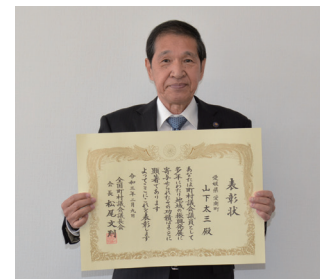 表彰状
愛媛県 愛南町
山下太三殿
あなたは町村議会議員として
多年にわたり地域の振興発展に
寄与せられたその功績はまことに
顕著であります
よってここにこれを表彰します
令和三年二月九日
全国町村議会議長会
会長 松尾文則